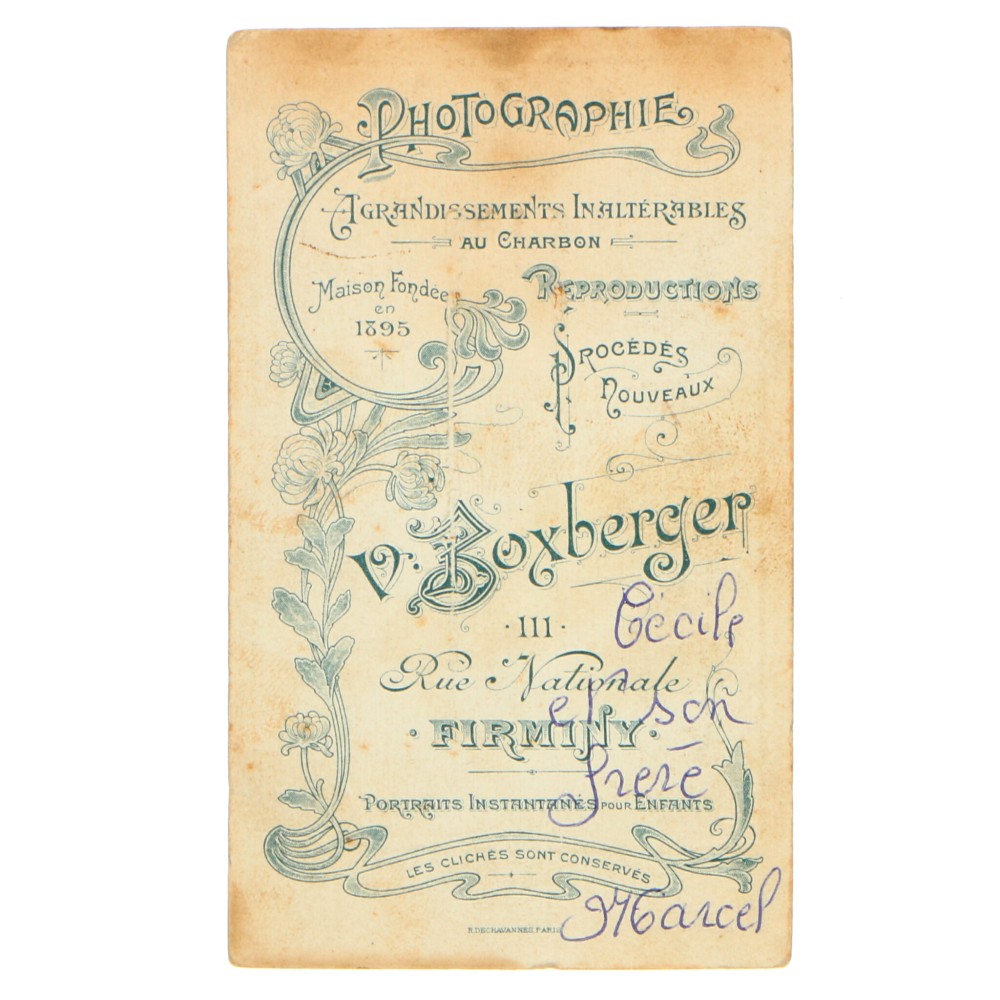 PHOTOGRAPHIE
AGRANDISSEMENTS INALTÉRABLES
AU CHARBON
Maison Fondée
en
1895
REPRODUCTIONS
PROCÉDÉS
NOUVEAUX
V. Boxberger
·111·
Rue Nationale
· FIRMINY ·
PORTRAITS INSTANTANÉS POUR ENFANTS
LES CLICHÉS SONT CONSERVÉS
R. DECHAVANNES, PARIS
Cécile
et son
frère
Marcel